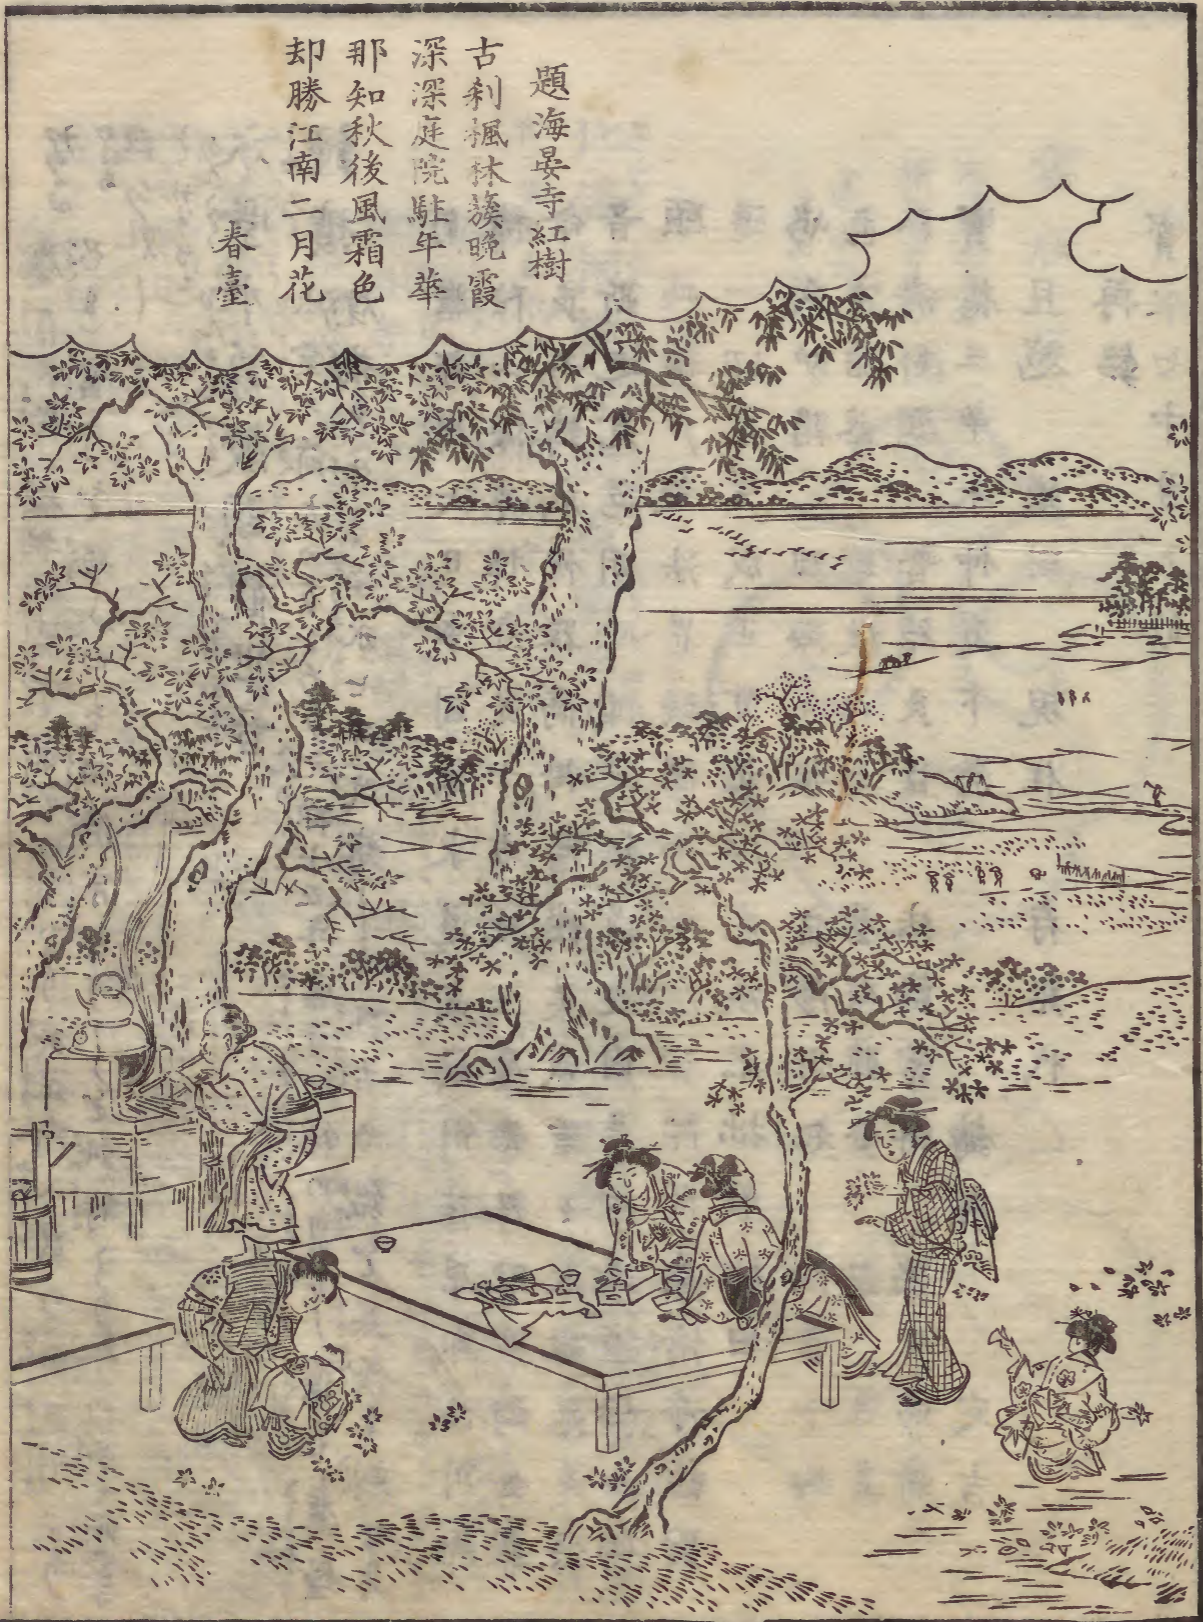 題海晏寺紅樹
古刹楓林簇晩霞
深深庭院駐年華
那知秋後風霜色
却勝江南二月花
春臺